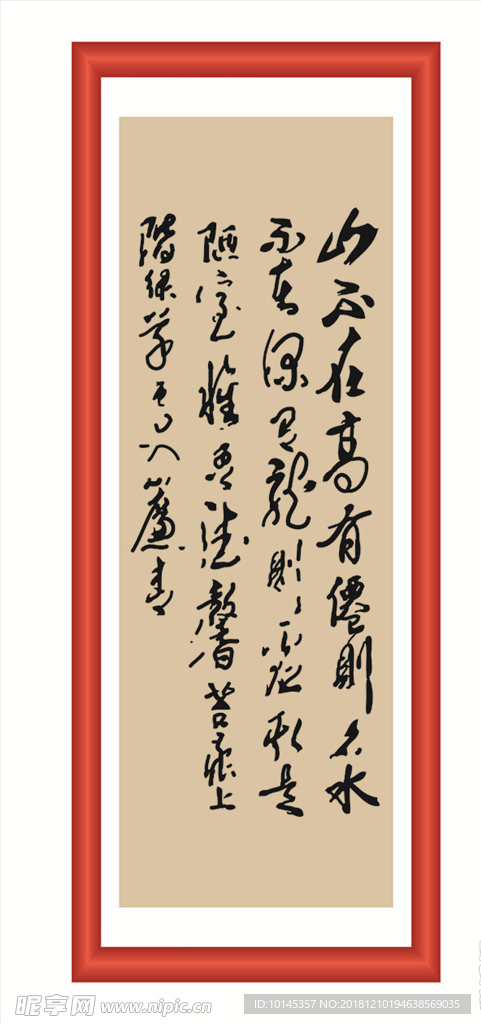 山不在高有僊則名水
不在深有龍則靈斯是
陋室惟吾德馨苔痕上
階綠草色入簾青
昵享网 www.nipic.cn
ID:10145357 NO:20181210194638569035